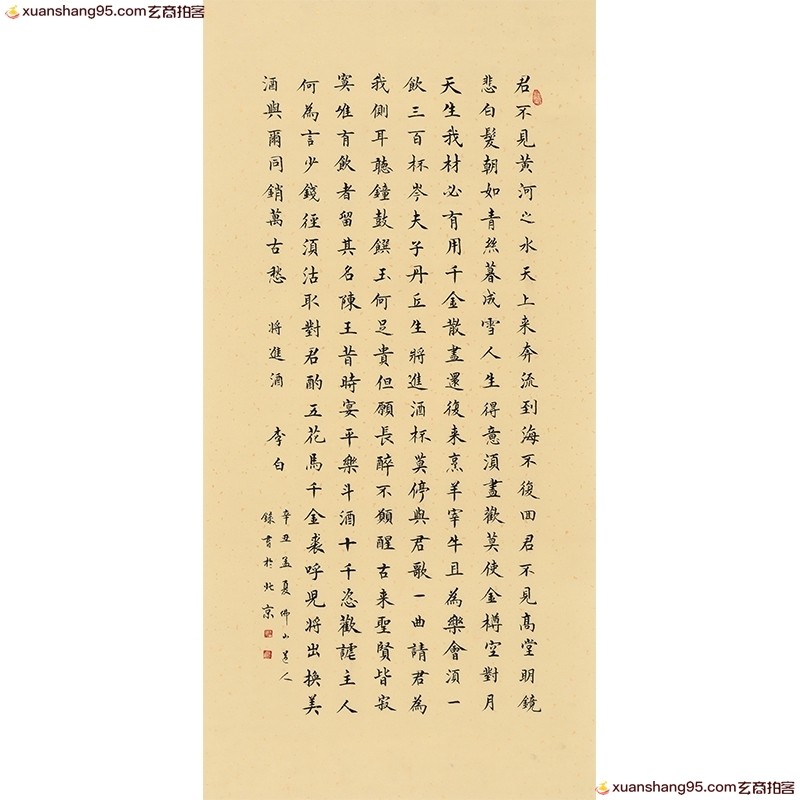 xuanshang95.com玄商拍客
君不見黃河之水天上来奔流到海不復回君不見高堂明鏡
悲白髮朝如青絲暮成雪人生得意須盡歡莫使金樽空對月
天生我材必有用千金散盡還復来烹羊宰牛且為樂會須一
飲三百杯岑夫子丹丘生將進酒杯莫停與君歌一曲請君為
我側耳聽鐘鼓饌玉何足貴但願長醉不願醒古来聖賢皆寂
寞唯有飲者留其名陳王昔時宴平樂斗酒十千恣歡謔主人
何為言少錢徑須沽取對君酌五花馬千金裘呼児將出換美
酒與爾同銷萬古愁 将進酒 李白
辛丑孟夏佛山道人
錄書於北京
xuanshang95.com玄商拍客